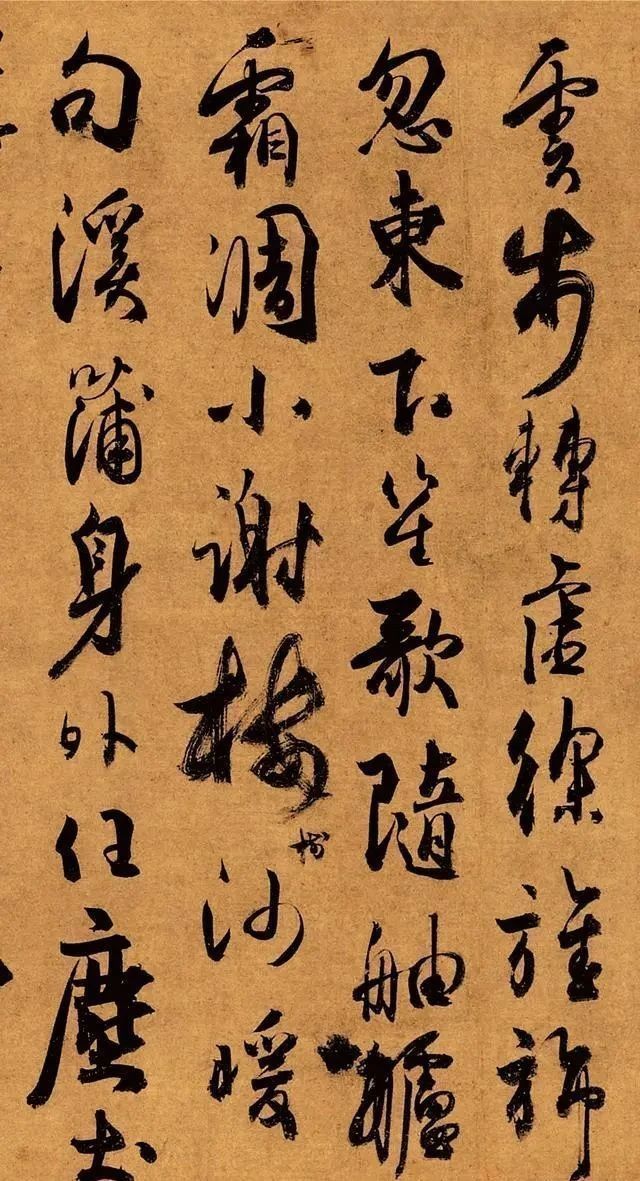 雲步轉虛徐旌旆
忽東下笙歌隨舳艫
霜凋小謝樓樹沙暖
句溪蒲身外任塵土